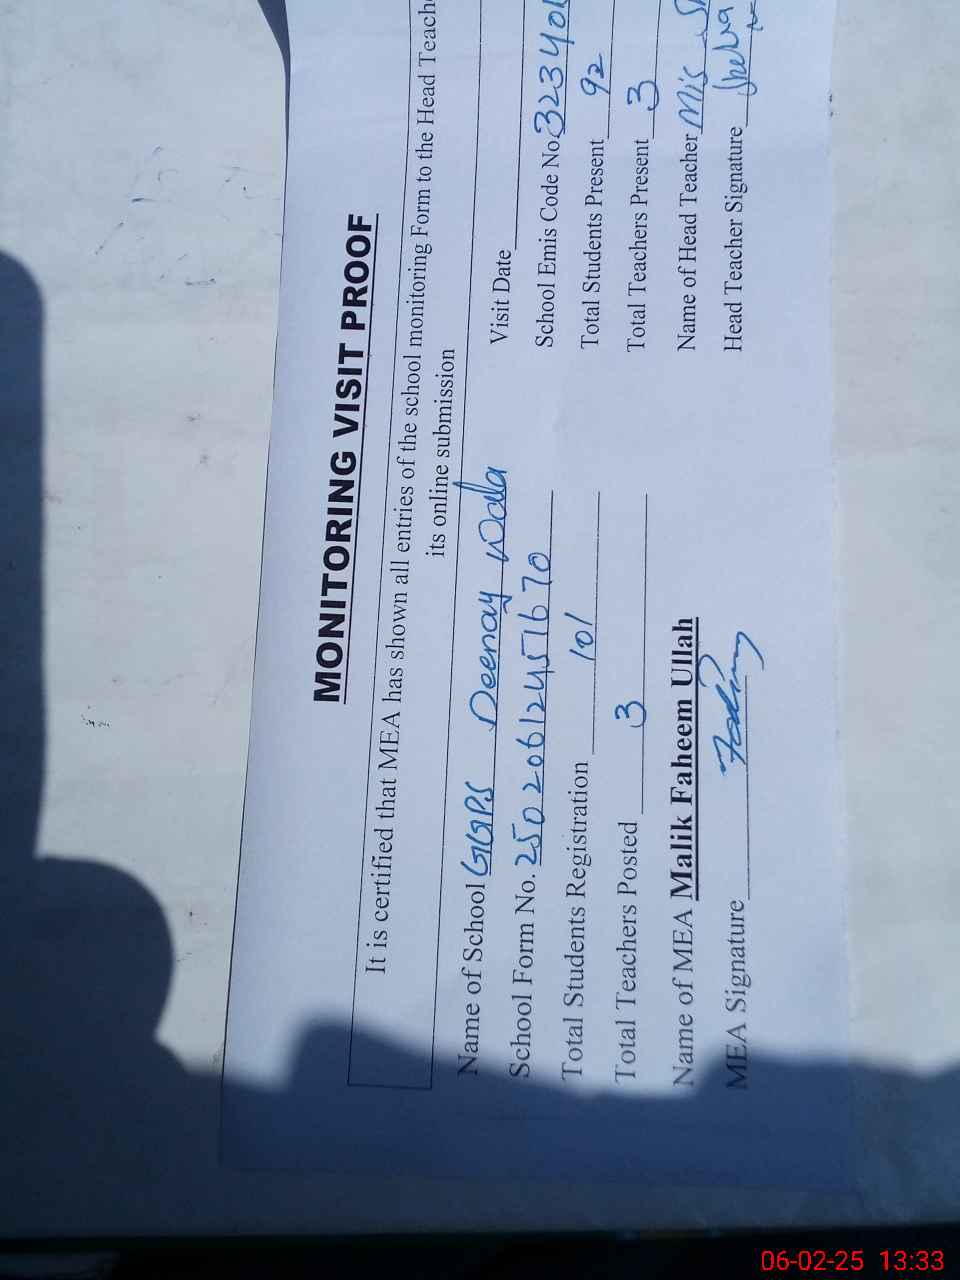 MONITORING VISIT PROOF
It is certified that MEA has shown all entries of the school monitoring Form to the Head Teache
its online submission
Name of School GGPS Deenay Wala
Visit Date
School Form No. 25020612451670
School Emis Code No 323401
Total Students Registration 101
Total Students Present 92
Total Teachers Posted 3
Total Teachers Present 3
Name of MEA Malik Faheem Ullah
Name of Head Teacher Mis
MEA Signature
Head Teacher Signature
06-02-25 13:33